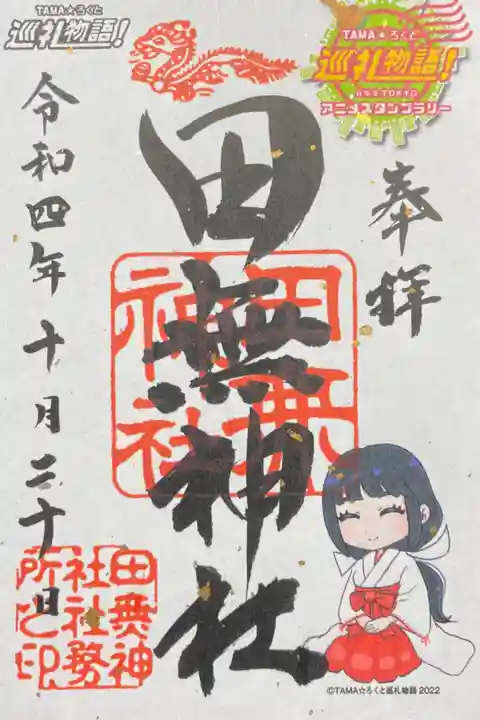 TAMA★ろくと
巡礼物語!
TAMA★ろくと
巡礼物語!
アニメスタンプラリー
奉拝
田無神社
田無神社
令和四年十月二十日
田無神
社社務
所之印
©TAMA☆ろくと巡礼物語 2022